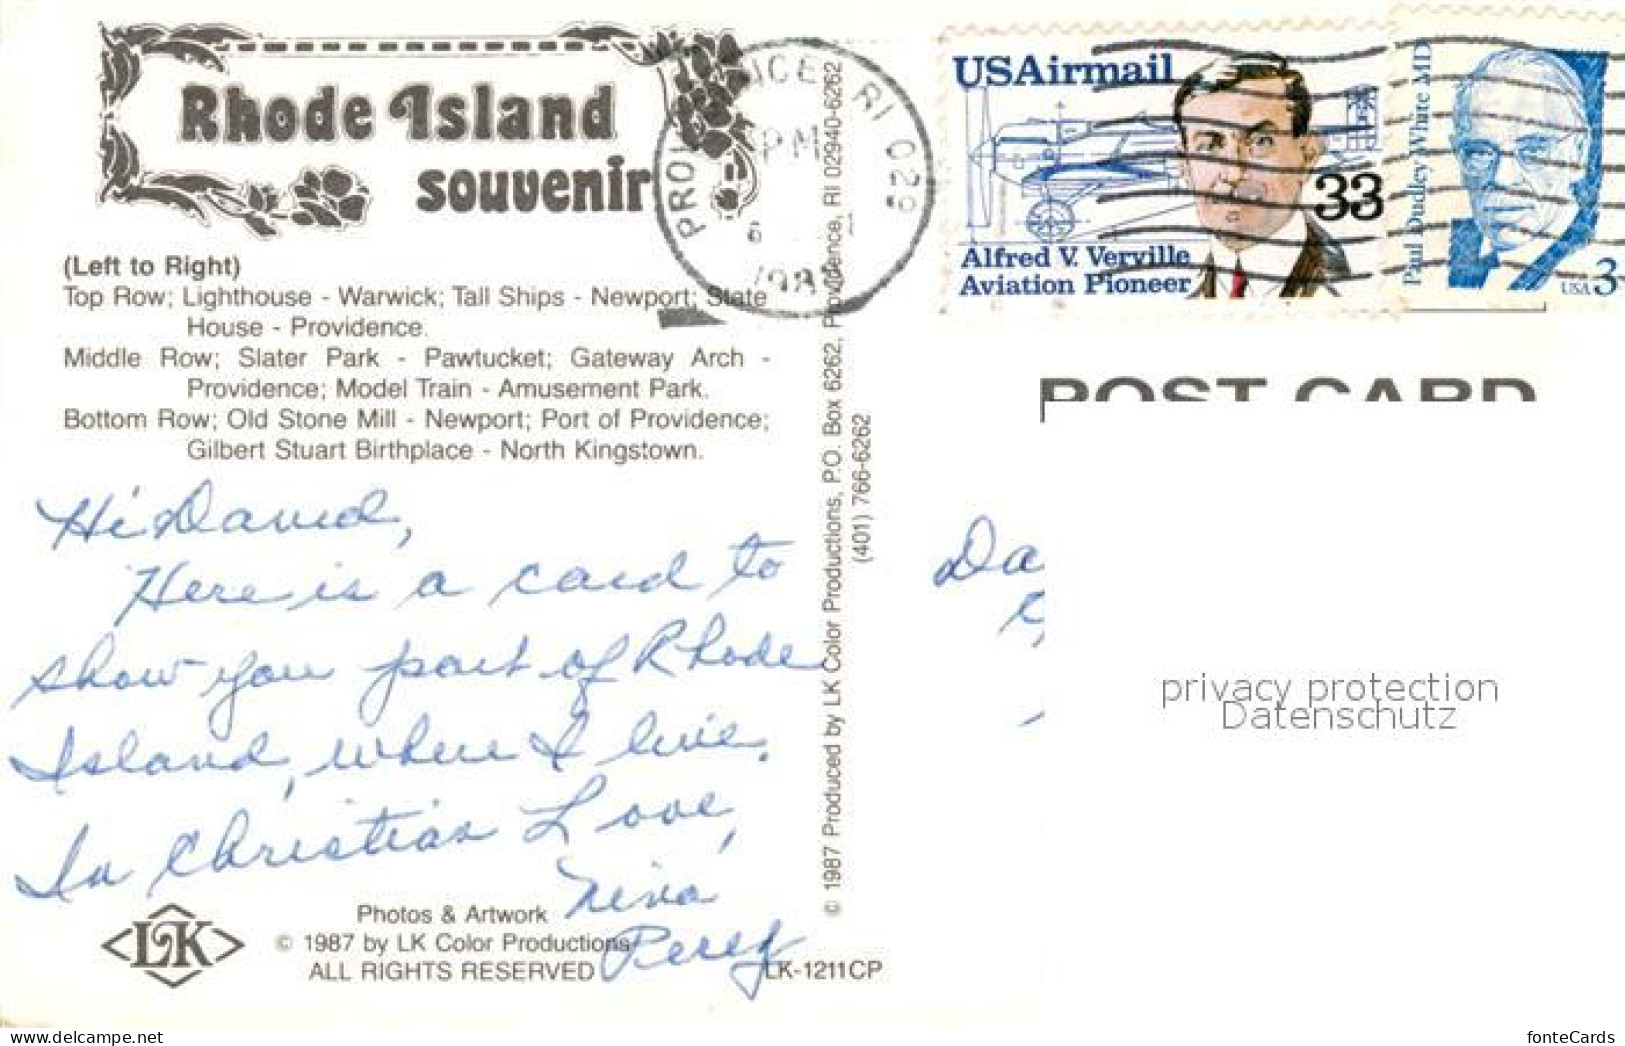 Rhode Island
souvenir
(Left to Right)
Top Row; Lighthouse - Warwick; Tall Ships - Newport; State
House - Providence.
Middle Row; Slater Park - Pawtucket; Gateway Arch -
Providence; Model Train - Amusement Park.
Bottom Row; Old Stone Mill - Newport; Port of Providence;
Gilbert Stuart Birthplace - North Kingstown.
Hi David,
Here is a card to
show you part of Rhode
Island, where I live.
In Christian Love,
Nina
Perez
LK
Photos & Artwork
© 1987 by LK Color Productions
ALL RIGHTS RESERVED
LK-1211CP
© 1987 Produced by LK Color Productions, P.O. Box 6262, Providence, RI 02940-6262
(401) 766-6262
RI 029
PM
USAirmail
33
Alfred V. Verville
Aviation Pioneer
Paul Dudley White MD
USA 3
POST CARD
Da
privacy protection
Datenschutz
www.ansichtskarten-center.de
fonteCards